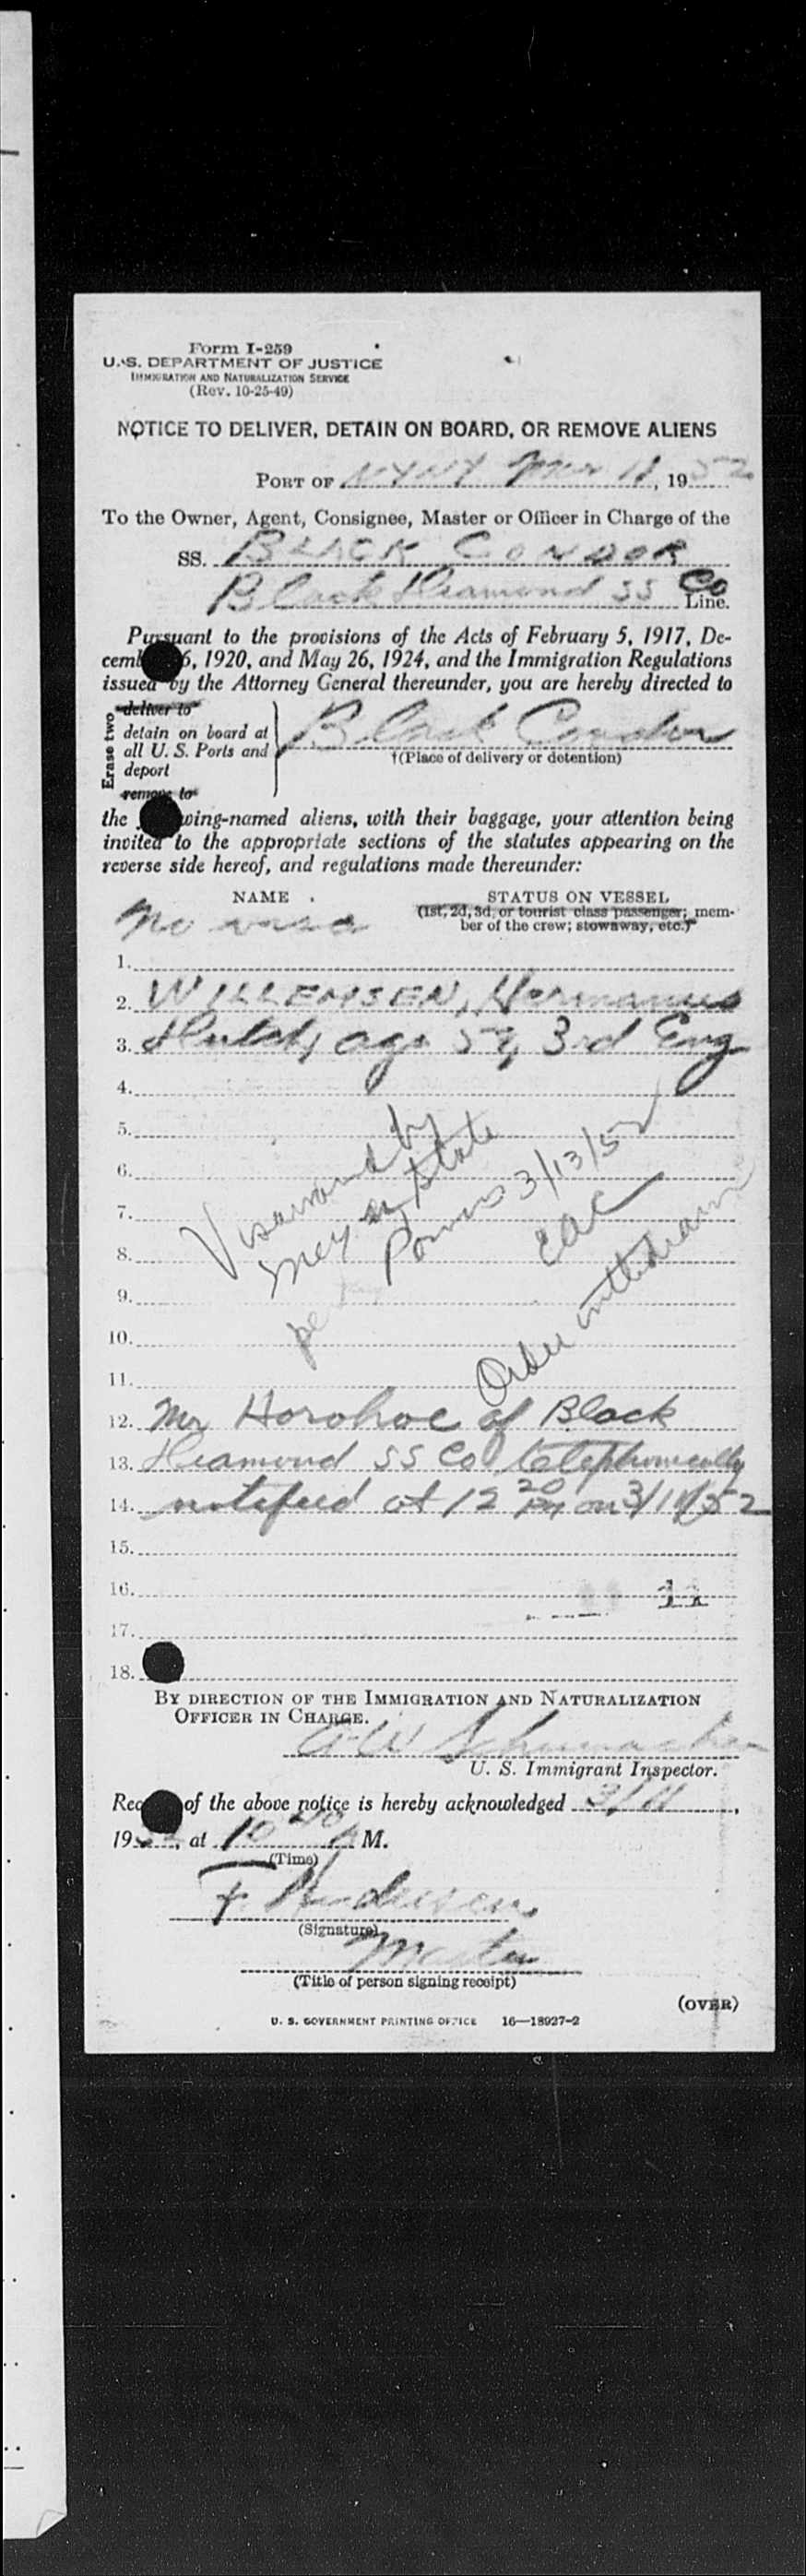 Form I-259
U. S. DEPARTMENT OF JUSTICE
IMMIGRATION AND NATURALIZATION SERVICE
(Rev. 10-25-49)
NOTICE TO DELIVER, DETAIN ON BOARD, OR REMOVE ALIENS
PORT OF NYNY Mar 11, 1952
To the Owner, Agent, Consignee, Master or Officer in Charge of the
SS. BLACK CONDOR
Black Diamond SS Co Line.
Pursuant to the provisions of the Acts of February 5, 1917, De-
cemb 6, 1920, and May 26, 1924, and the Immigration Regulations
issued by the Attorney General thereunder, you are hereby directed to
Erase two
deliver to
detain on board at
all U. S. Ports and
deport
remove to
Black Condor
†(Place of delivery or detention)
the wing-named aliens, with their baggage, your attention being
invited to the appropriate sections of the statutes appearing on the
reverse side hereof, and regulations made thereunder:
NAME STATUS ON VESSEL
(1st, 2d, 3d, or tourist class passenger; mem-
ber of the crew; stowaway, etc.)
No visa
1.
2. WILLEMSEN, Hermanus
3. Dutch, age 59, 3rd Eng
4.
5.
6.
7.
8.
9.
10.
11.
Visa waived by
State
per 3/13/52
EAC
Order withdrawn
12. Mr Horohoe of Black
13. Diamond SS Co telephonically
14. notified at 12 20 PM on 3/11/52
15.
16.
17.
18.
BY DIRECTION OF THE IMMIGRATION AND NATURALIZATION
OFFICER IN CHARGE.
Schumacher
U. S. Immigrant Inspector.
Rec of the above notice is hereby acknowledged 3/11,
1952, at 10 40 A M.
(Time)
F. Andersen
(Signature)
Master
(Title of person signing receipt)
(OVER)
U. S. GOVERNMENT PRINTING OFFICE 16—18927-2